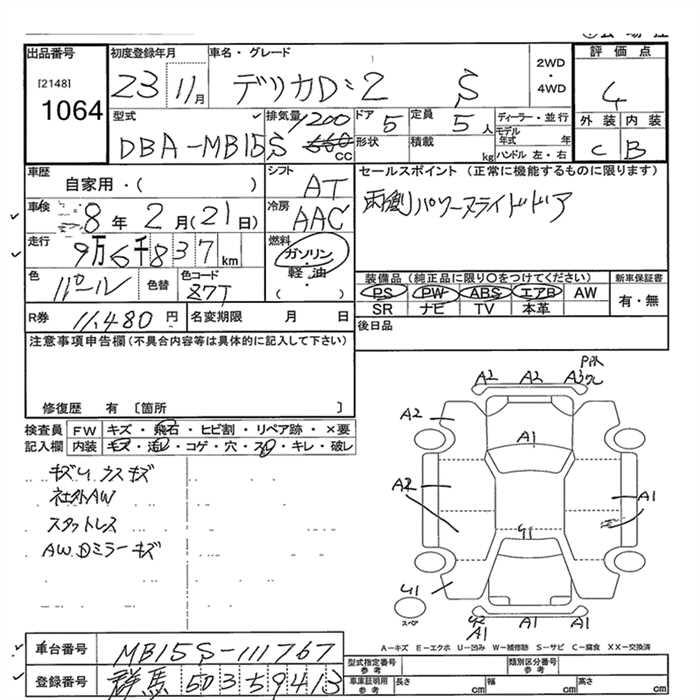 出品番号 初度登録年月 車名・グレード 評価点
[2148] 1064 23 11月 デリカD:2 S 2WD・4WD 4
型式 排気量 1200 660 cc ドア 5 定員 5人 ディーラー・並行 外装 内装
DBA-MB15S 形状 積載 kg モデル年式 年 ハンドル 左・右 C B
車歴 自家用・( ) シフト AT セールスポイント (正常に機能するものに限ります)
車検 8年 2月(21日) 冷房 AAC 両側パワースライドドア
走行 9万6千837km 燃料 ガソリン・軽油 ( )
色 パール 色替 色コード 87T 装備品(純正品に限り○をつけてください) 新車保証書
PS PW ABS エアB AW 有・無
R券 11,480円 名変期限 月 日 SR ナビ TV 本革
注意事項申告欄(不具合内容等は具体的に記入して下さい) 後日品
修復歴 有 〔箇所 〕
検査員 FW キズ・飛石・ヒビ割・リペア跡・×要
記入欄 内装 キズ・汚レ・コゲ・穴・スレ・キレ・破レ
社外AW
スタットレス
AW.Dミラーキズ
A2 A2 A3
A2 A1
A2 A1
U1
U1
スペア
A1 A1
A-キズ E-エクボ U-凹み W-補修跡 S-サビ C-腐食 XX-交換済
車台番号 MB15S-111767
登録番号 群馬 503 59413
型式指定番号 参考 類別区分番号 参考
車庫証明用 参考 長さ cm 幅 cm 高さ cm